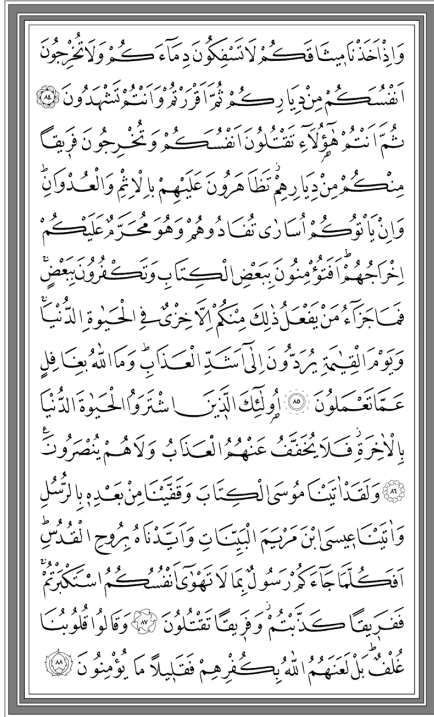 وَاِذْ اَخَذْنَا مٖيثَاقَكُمْ لَا تَسْفِكُونَ دِمَٓاءَكُمْ وَلَا تُخْرِجُونَ
اَنْفُسَكُمْ مِنْ دِيَارِكُمْ ثُمَّ اَقْرَرْتُمْ وَاَنْتُمْ تَشْهَدُونَ ﴿٨٤﴾
ثُمَّ اَنْتُمْ هٰٓؤُ۬لَٓاءِ تَقْتُلُونَ اَنْفُسَكُمْ وَتُخْرِجُونَ فَرٖيقًا
مِنْكُمْ مِنْ دِيَارِهِمْۘ تَظَاهَرُونَ عَلَيْهِمْ بِالْاِثْمِ وَالْعُدْوَانِؕ
وَاِنْ يَاْتُوكُمْ اُسَارٰى تُفَادُوهُمْ وَهُوَ مُحَرَّمٌ عَلَيْكُمْ
اِخْرَاجُهُمْؕ اَفَتُؤْمِنُونَ بِبَعْضِ الْكِتَابِ وَتَكْفُرُونَ بِبَعْضٍۚ
فَمَا جَزَٓاءُ مَنْ يَفْعَلُ ذٰلِكَ مِنْكُمْ اِلَّا خِزْىٌ فِى الْحَيٰوةِ الدُّنْيَاۚ
وَيَوْمَ الْقِيٰمَةِ يُرَدُّونَ اِلٰٓى اَشَدِّ الْعَذَابِؕ وَمَا اللّٰهُ بِغَافِلٍ
عَمَّا تَعْمَلُونَ ﴿٨٥﴾ اُو۬لٰٓئِكَ الَّذٖينَ اشْتَرَوُا الْحَيٰوةَ الدُّنْيَا
بِالْاٰخِرَةِؗ فَلَا يُخَفَّفُ عَنْهُمُ الْعَذَابُ وَلَا هُمْ يُنْصَرُونَ۟
﴿٨٦﴾ وَلَقَدْ اٰتَيْنَا مُوسَى الْكِتَابَ وَقَفَّيْنَا مِنْ بَعْدِهٖ بِالرُّسُلِ
وَاٰتَيْنَا عٖيسَى ابْنَ مَرْيَمَ الْبَيِّنَاتِ وَاَيَّدْنَاهُ بِرُوحِ الْقُدُسِؕ
اَفَكُلَّمَا جَٓاءَكُمْ رَسُولٌ بِمَا لَا تَهْوٰٓى اَنْفُسُكُمُ اسْتَكْبَرْتُمْۚ
فَفَرٖيقًا كَذَّبْتُمْؗ وَفَرٖيقًا تَقْتُلُونَ ﴿٨٧﴾ وَقَالُوا قُلُوبُنَا
غُلْفٌؕ بَلْ لَعَنَهُمُ اللّٰهُ بِكُفْرِهِمْ فَقَلٖيلًا مَا يُؤْمِنُونَ ﴿٨٨﴾